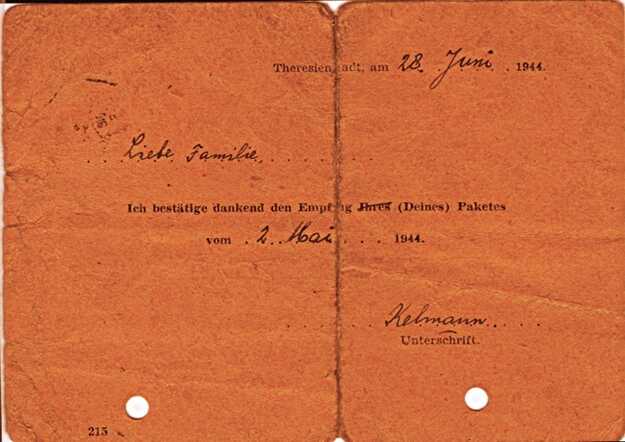 Theresienstadt, am 28. Juni 1944.
Liebe Familie
Ich bestätige dankend den Empfang Ihres (Deines) Paketes
vom 2. Mai 1944.
Kelmann
Unterschrift.
215